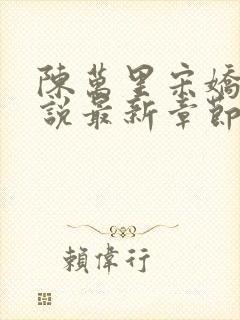 陳萬里宋嬌
說最新章節
賴偉行